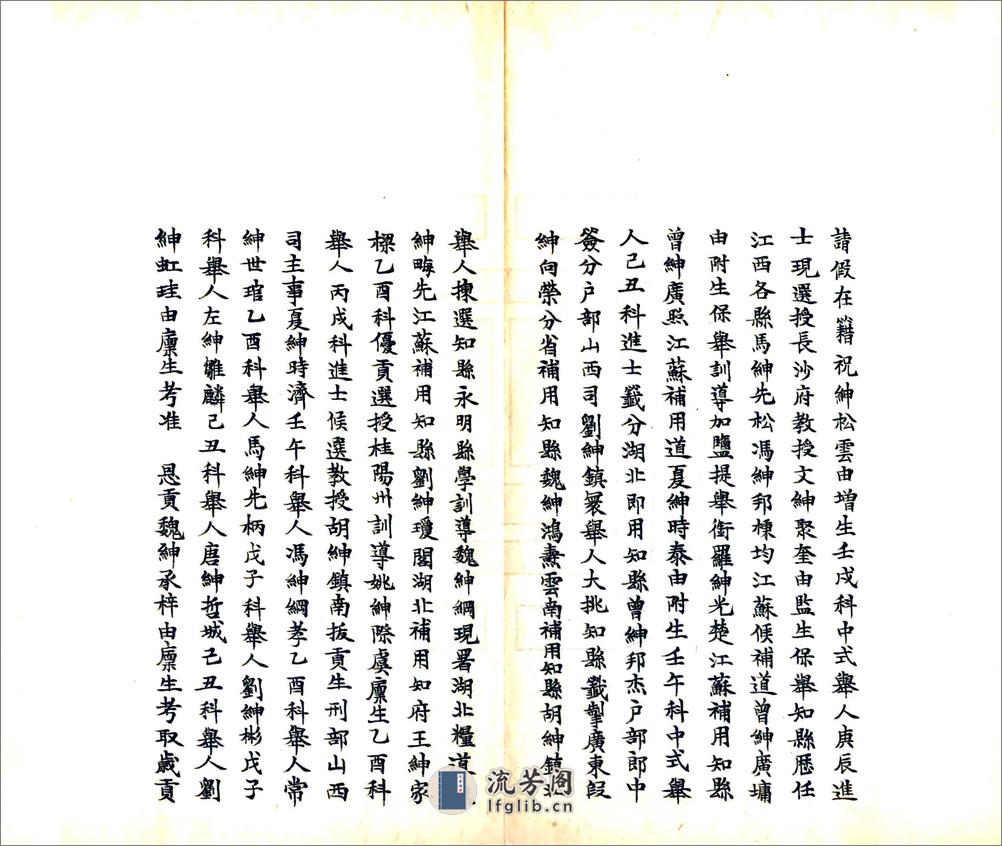 請假在籍祝紳松雲由增生壬戌科中式舉人庚辰進
士現選授長沙府教授文紳聚奎由監生保舉知縣歷任
江西各縣馬紳先松馮紳邦棟均江蘇候補道曾紳廣墉
由附生保舉訓導加鹽提舉銜羅紳光楚江蘇補用知縣
曾紳廣照江蘇補用道夏紳時泰由附生壬午科中式舉
人己丑科進士籤分湖北即用知縣曾紳邦杰戶部郎中
簽分户部山西司劉紳鎮寰舉人大挑知縣籤掣廣東叚
紳向榮分省補用知縣魏紳鴻燾雲南補用知縣胡紳鎮
舉人揀選知縣永明縣學訓導魏紳綱現署湖北糧道
紳晦先江蘇補用知縣劉紳瓊閣湖北補用知府王紳家
樑乙酉科優貢選授桂陽州訓導姚紳際虞廩生乙酉科
舉人丙戌科進士候選教授胡紳鎮南拔貢生刑部山西
司主事夏紳時濟壬午科舉人馮紳綱孝乙酉科舉人常
紳世琯乙酉科舉人馬紳先柄戊子科舉人劉紳彬戊子
科舉人左紳雛麟己丑科舉人唐紳哲城己丑科舉人劉
紳虹珪由廩生考准　恩貢魏紳承梓由廩生考取歲貢
流芳阁
lfglib.cn